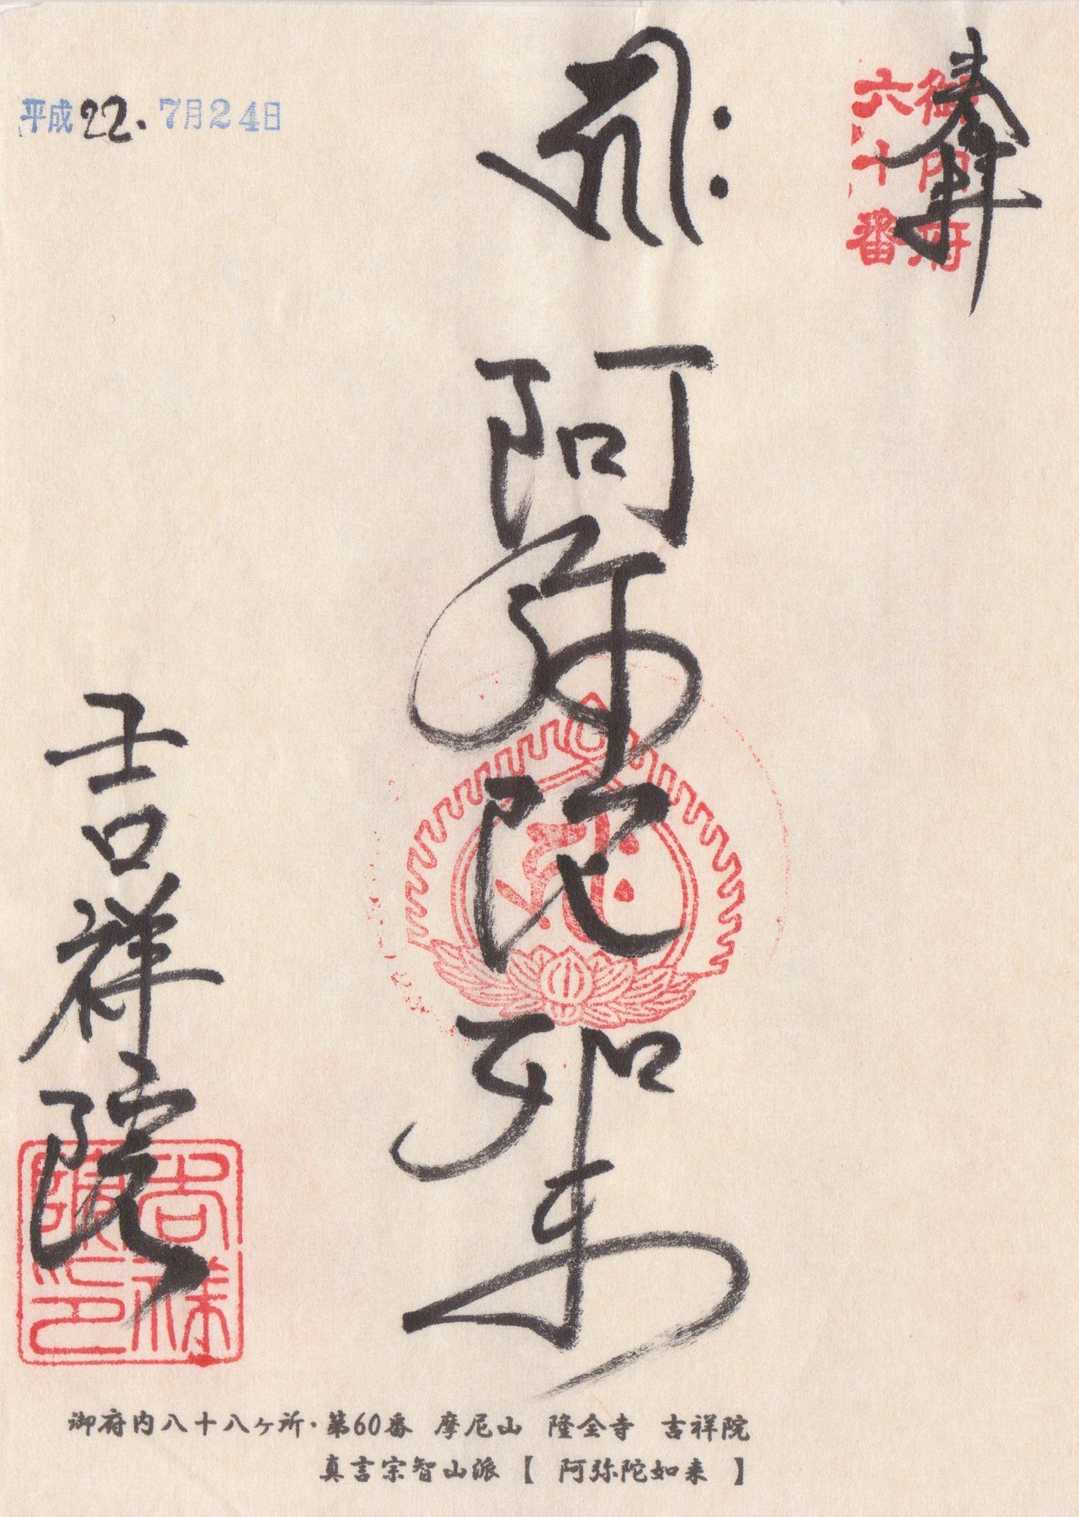 奉拝
御府内
六十番
平成22.7月24日
阿弥陀如来
吉祥院
吉祥
院印
御府内八十八ヶ所・第60番 摩尼山 隆全寺 吉祥院
真言宗智山派【 阿弥陀如来 】